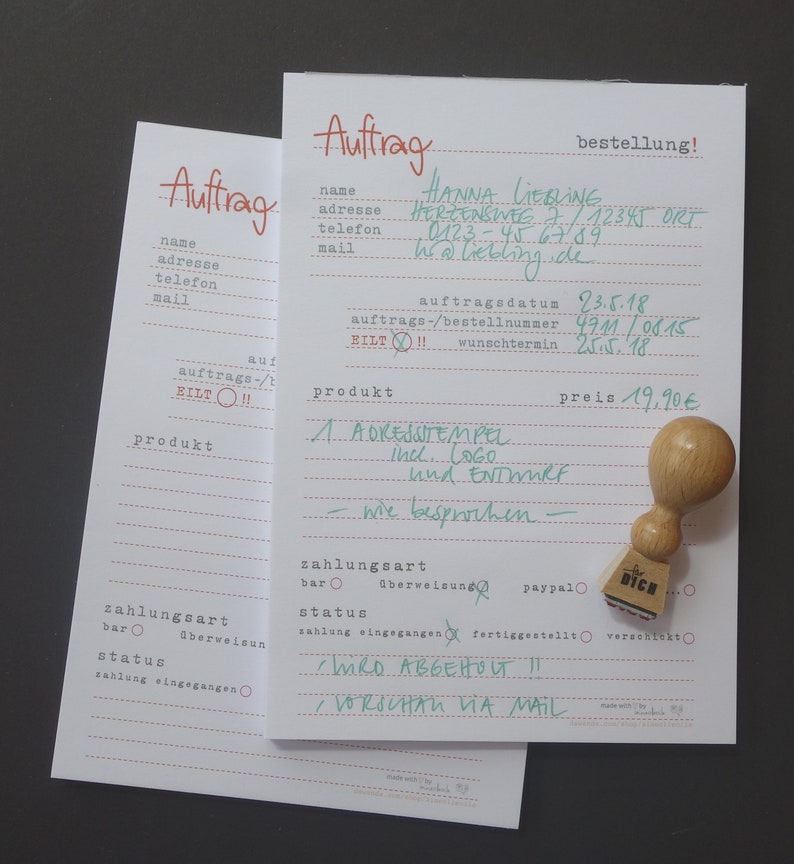 Auftrag bestellung!
name HANNA LIEBLING
adresse HERZENSWEG 7 / 12345 ORT
telefon 0123 - 45 67 89
mail hi@liebling.de
auftragsdatum 23.5.18
auftrags-/bestellnummer 4711 / 0815
EILT !! wunschtermin 25.5.18
produkt preis 19,90€
1 ADRESSTEMPEL
incl. LOGO
und ENTWURF
- wie besprochen -
zahlungsart
bar überweisung paypal ...
status
zahlung eingegangen fertiggestellt verschickt
, WIRD ABGEHOLT !!
, VORSCHAU VIA MAIL
made with by
für
DICH
Auftrag
name
adresse
telefon
mail
auf
auftrags-/b
EILT !!
produkt
zahlungsart
bar überweisun
status
zahlung eingegangen
made with by